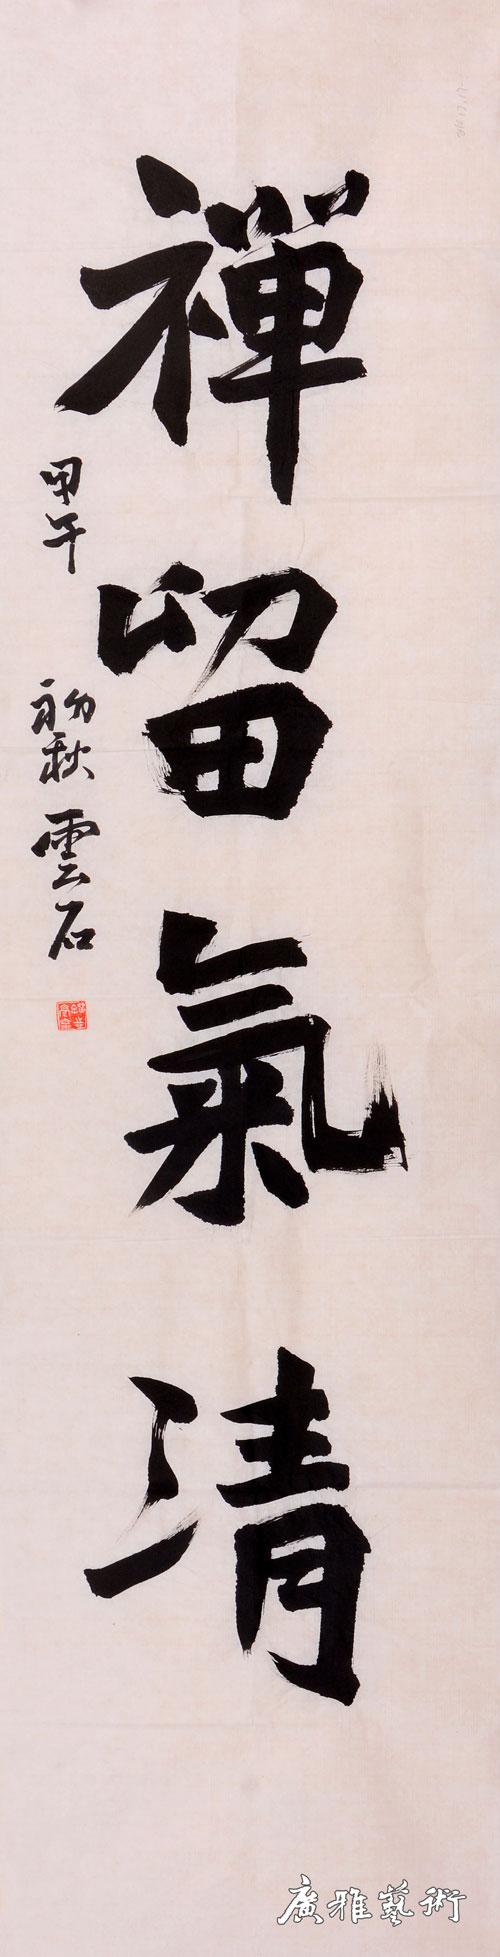 禪留氣清
甲午初秋雲石
廣雅藝術